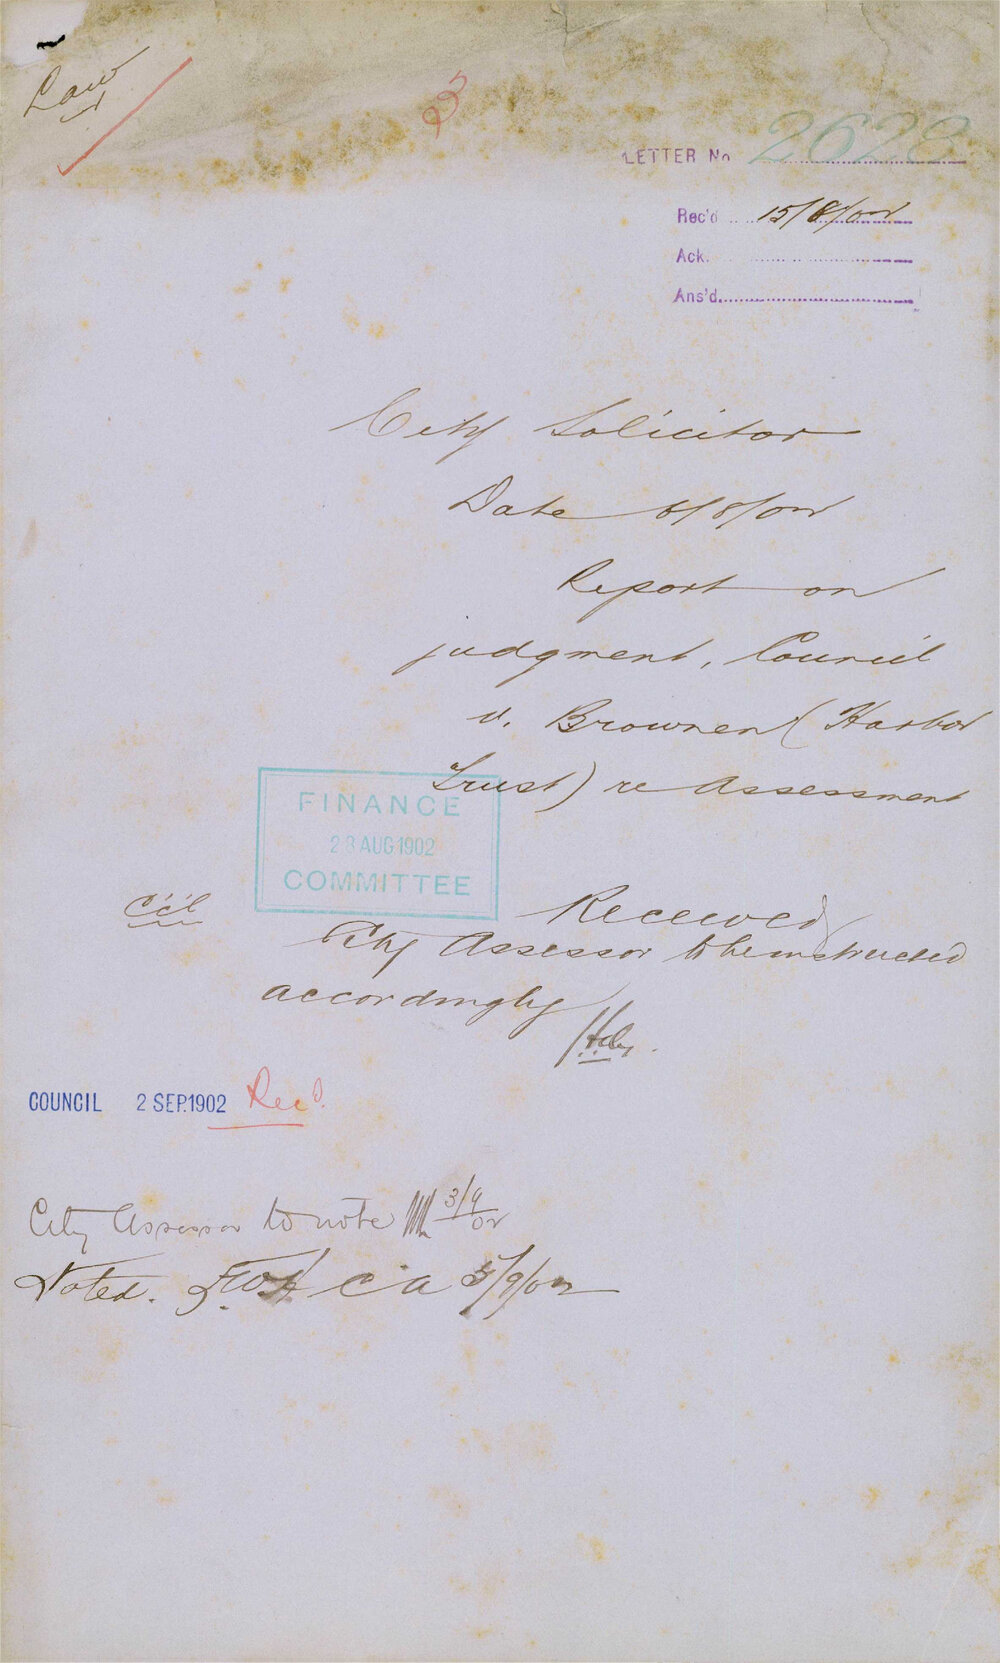 Law
25
LETTER No 2628
Rec'd 15/8/02
Ack.
Ans'd.
City Solicitor
Date 6/8/02
Report on
judgment, Council
v. Brownen (Harbor
Trust) re Assessment
FINANCE
28 AUG 1902
COMMITTEE
C'c'l
Received
City Assessor to be instructed
accordingly
COUNCIL 2 SEP.1902 Recd.
City Assessor to note 3/9/02
Noted. F.W.H C A 5/9/02